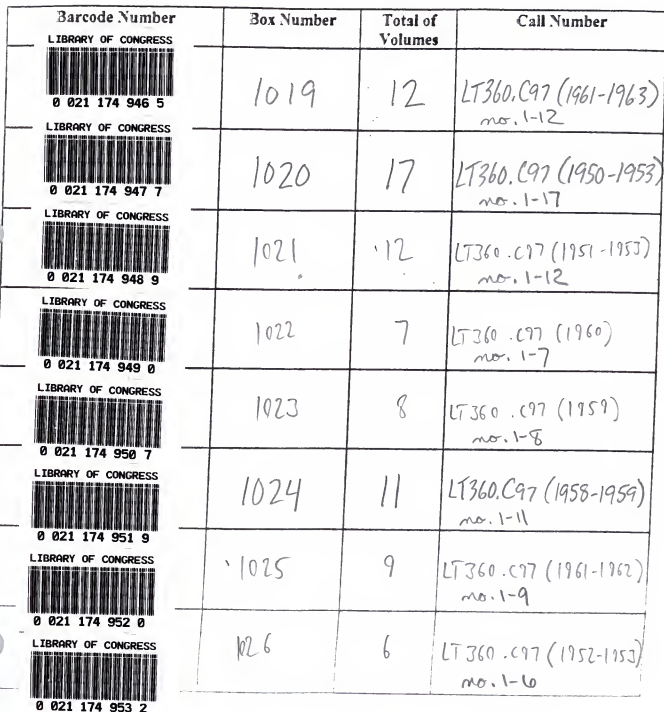 Barcode Number Box Number Total of Volumes Call Number
LIBRARY OF CONGRESS
0 021 174 946 5
1019 12 LT360.C97 (1961-1963)
no. 1-12
LIBRARY OF CONGRESS
0 021 174 947 7
1020 17 LT360.C97 (1950-1953)
no. 1-17
LIBRARY OF CONGRESS
0 021 174 948 9
1021 12 LT360.C97 (1951-1953)
no. 1-12
LIBRARY OF CONGRESS
0 021 174 949 0
1022 7 LT360.C97 (1960)
no. 1-7
LIBRARY OF CONGRESS
0 021 174 950 7
1023 8 LT360.C97 (1959)
no. 1-8
LIBRARY OF CONGRESS
0 021 174 951 9
1024 11 LT360.C97 (1958-1959)
no. 1-11
LIBRARY OF CONGRESS
0 021 174 952 0
1025 9 LT360.C97 (1961-1962)
no. 1-9
LIBRARY OF CONGRESS
0 021 174 953 2
1026 6 LT360.C97 (1952-1953)
no. 1-6